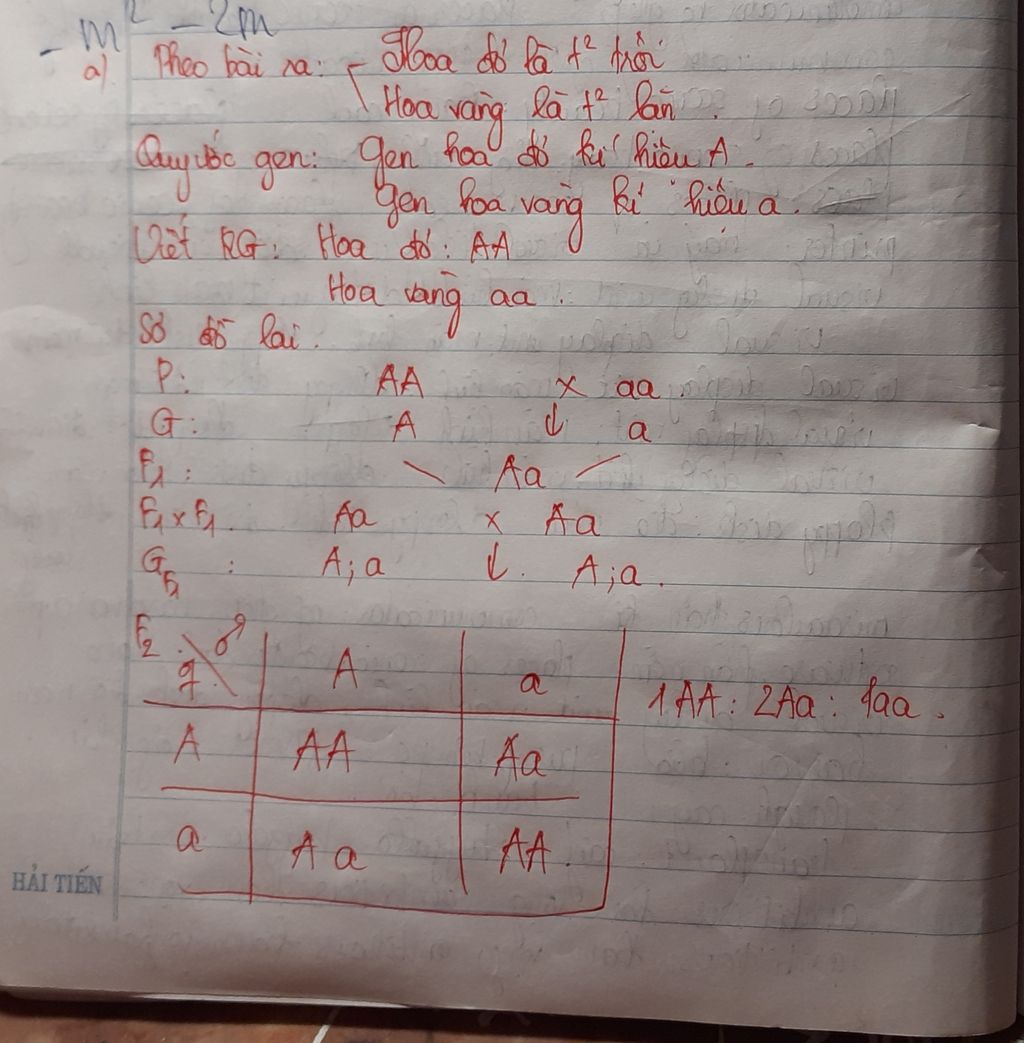 - m² - 2m
a) Theo bài ra: - Hoa đỏ là t² trội
Hoa vàng là t² lặn.
Quy ước gen: gen hoa đỏ kí hiệu A.
gen hoa vàng kí hiệu a.
Viết KG: Hoa đỏ: AA
Hoa vàng aa.
Sơ đồ lai.
P: AA x aa
G: A ↓ a
F₁: Aa
F₁ x F₁. Aa x Aa
G F₁ : A; a ↓. A; a.
F₂ ♀ ♂ A a 1AA: 2Aa: 1aa.
A AA Aa
a Aa AA.
HẢI TIẾN